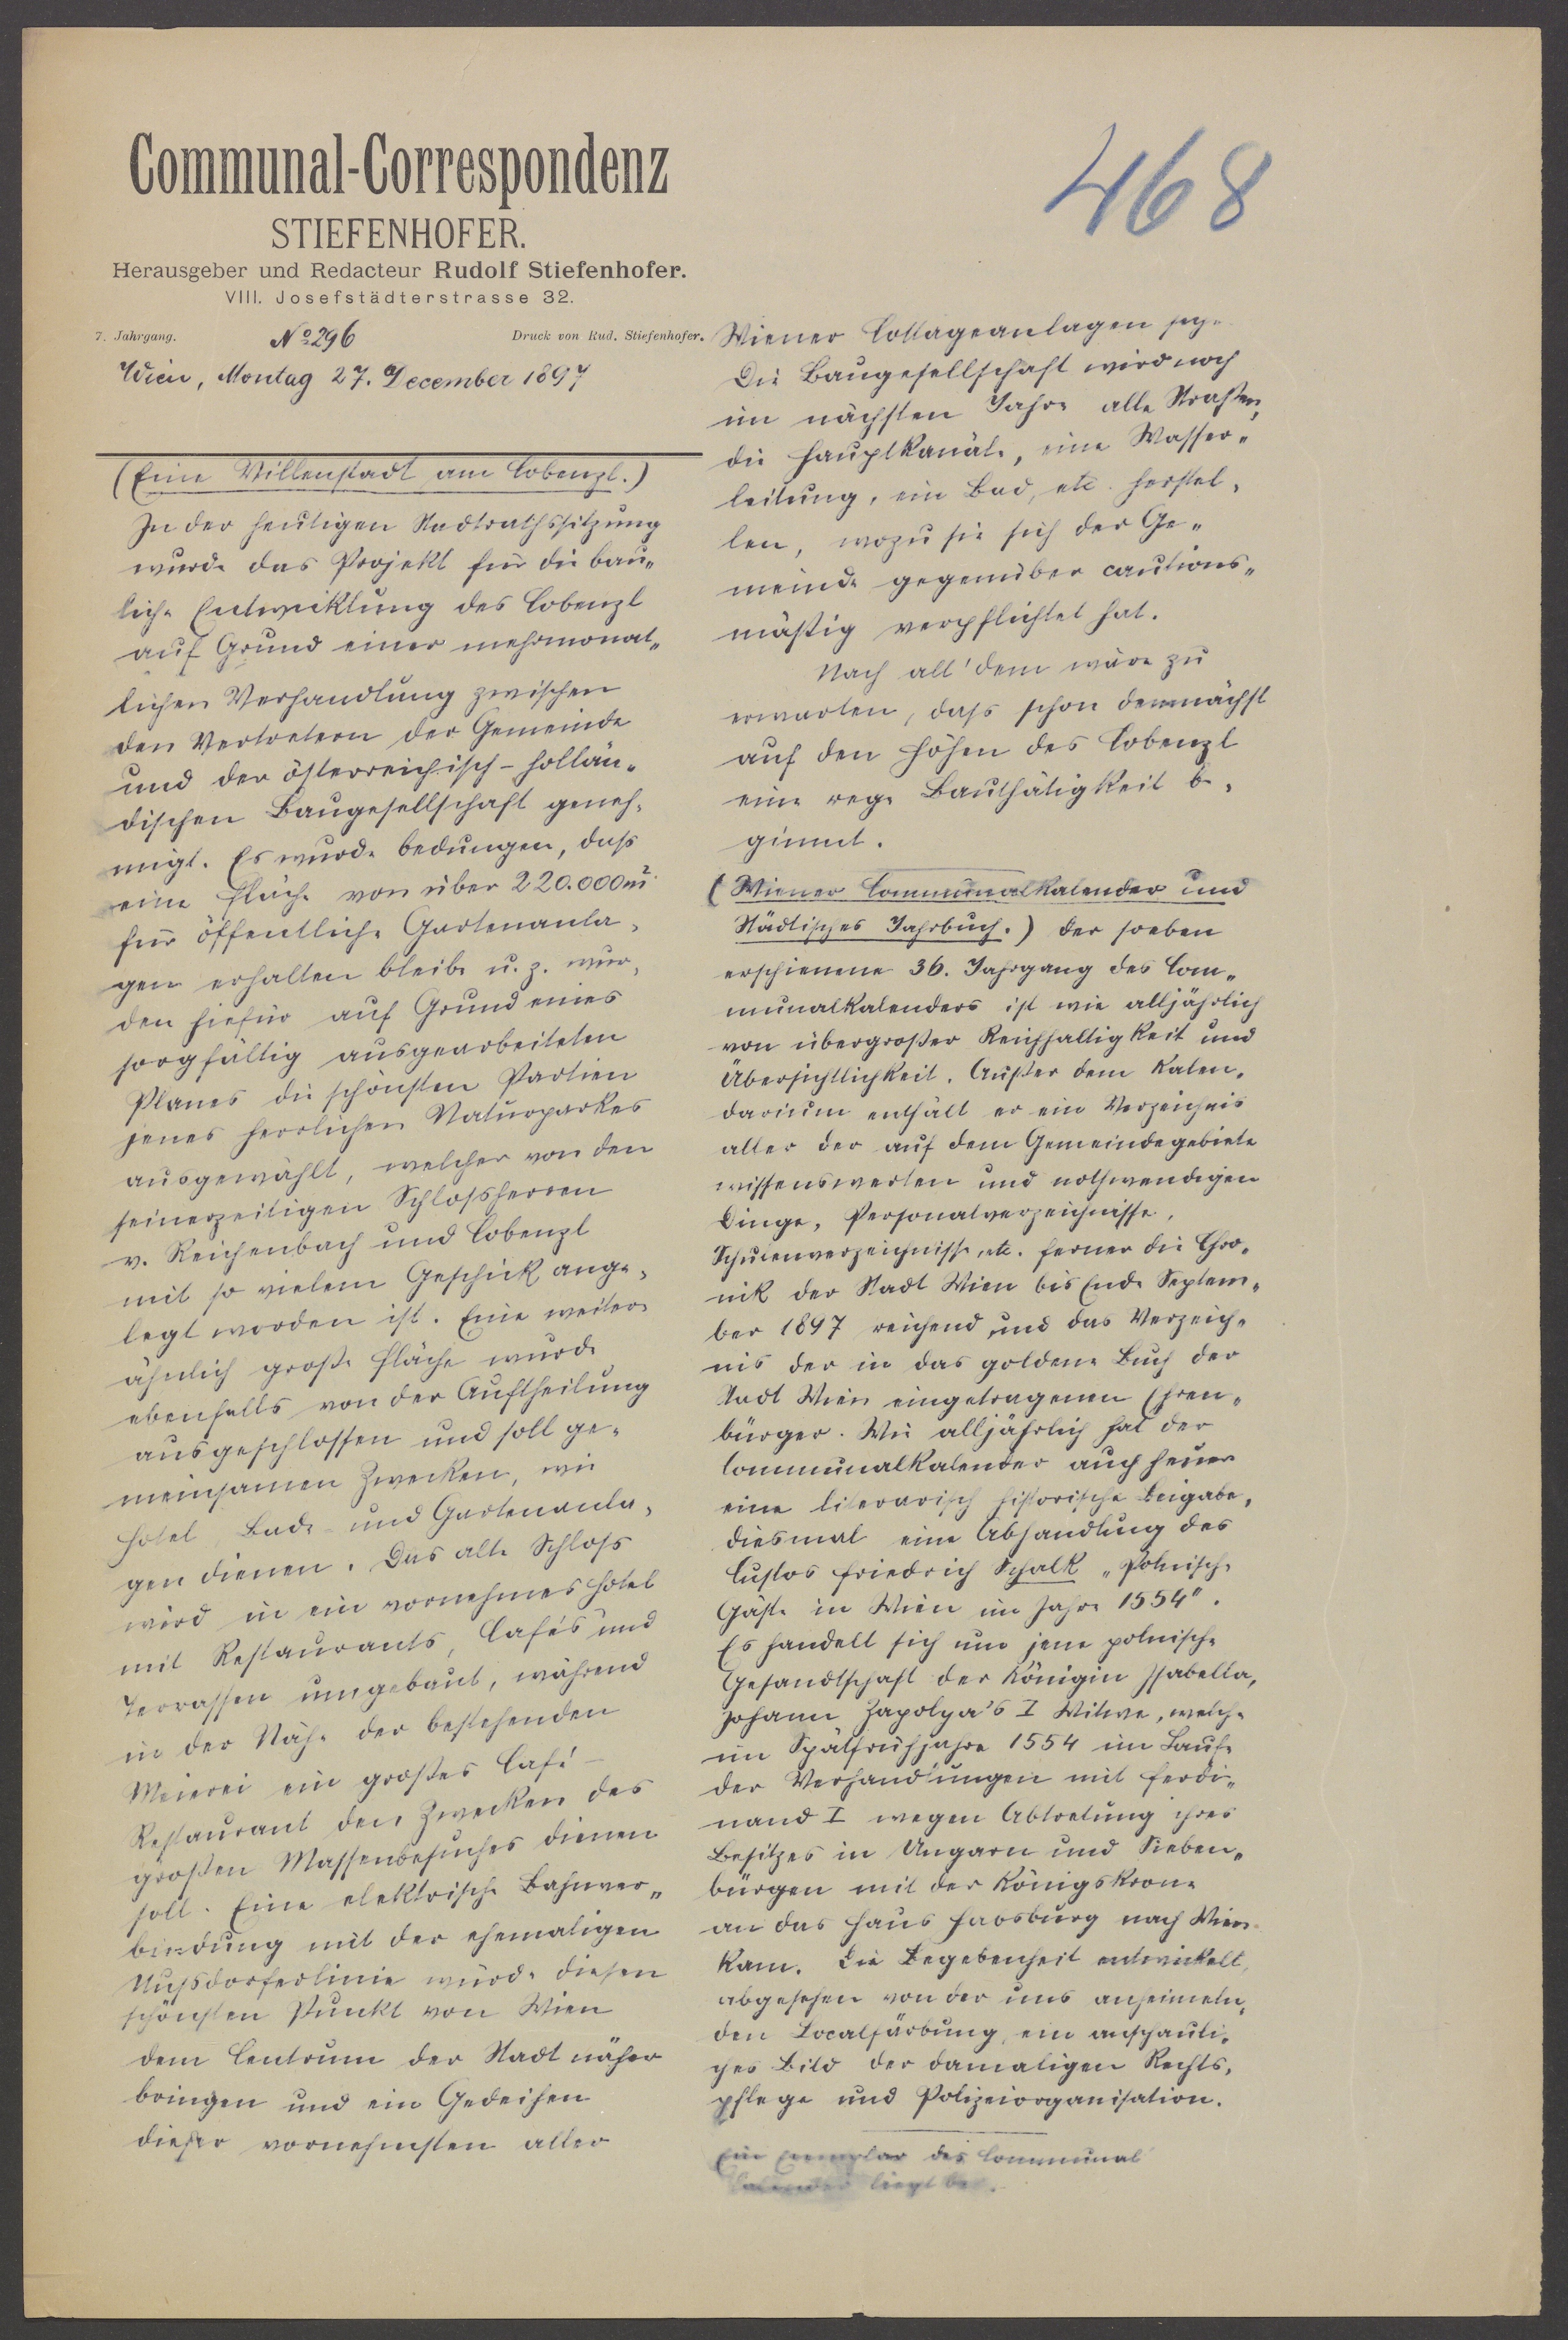 Communal-Correspondenz
STIEFENHOFER.
Herausgeber und Redacteur Rudolf Stiefenhofer.
VIII. Josefstädterstrasse 32.
7. Jahrgang. No 296 Druck von Rud. Stiefenhofer.
Wien, Montag 27. December 1897
468
(Eine Villenstadt am Cobenzl.)
In der heutigen Stadtrathssitzung
wurde das Projekt für die bau„
liche Entwicklung des Cobenzl
auf Grund einer mehrmonat„
lichen Verhandlung zwischen
den Vertretern der Gemeinde
und der österreichisch-hollän„
dischen Baugesellschaft geneh„
migt. Es wurde bedungen, dass
eine Fläche von über 220.000 m²
für öffentliche Gartenanla„
gen erhalten bleibe u. z. wur„
den hiefür auf Grund eines
sorgfältig ausgearbeiteten
Planes die schönsten Partien
jenes herrlichen Naturparkes
ausgewählt, welcher von den
seinerzeitigen Schlossherren
v. Reichenbach und Cobenzl
mit so vielem Geschick ange„
legt worden ist. Eine weitere
ähnlich große Fläche wurde
ebenfalls von der Auftheilung
ausgeschlossen und soll ge„
meinsamen Zwecken, wie
Hotel, Bade- und Gartenanla„
gen dienen. Das alte Schloss
wird in ein vornehmes Hotel
mit Restaurants, Cafés und
Terrassen umgebaut, während
in der Nähe der bestehenden
Meierei ein großes Café-
Restaurant den Zwecken des
großen Massenbesuches dienen
soll. Eine elektrische Bahnver„
bindung mit der ehemaligen
Nussdorferlinie würde diesen
schönsten Punkt von Wien
dem Centrum der Stadt näher
bringen und ein Gedeihen
dieser vornehmsten aller
Wiener Cottageanlagen
Die Baugesellschaft wird noch
im nächsten Jahre alle Straßen,
die Hauptkanäle, eine Wasser„
leitung, ein Bad, etc. herstel„
len, wozu sie sich der Ge„
meinde gegenüber cautions„
mäßig verpflichtet hat.
Nach all' dem wäre zu
erwarten, dass schon demnächst
auf den Höhen des Cobenzl
eine rege Bauthätigkeit be„
ginnt.
(Wiener Communalkalender und
Städtisches Jahrbuch.) Der soeben
erschienene 36. Jahrgang des Com„
munalkalenders ist wie alljährlich
von übergroßer Reichhaltigkeit und
Übersichtlichkeit. Außer dem Kalen„
darium enthält er ein Verzeichnis
aller der auf dem Gemeindegebiete
wissenswerten und nothwendigen
Dinge, Personalverzeichnisse,
Schulenverzeichnisse, etc. ferner die Chro„
nik der Stadt Wien bis Ende Septem„
ber 1897 reichend und das Verzeich„
nis der in das goldene Buch der
Stadt Wien eingetragenen Ehren„
bürger. Wie alljährlich hat der
Communalkalender auch heuer
eine literarisch historische Beigabe,
diesmal eine Abhandlung des
Custos Friedrich Schalk „Polnische
Gäste in Wien im Jahre 1554".
Es handelt sich um jene polnische
Gesandtschaft der Königin Isabella,
Johann Zapolya's I Witwe, welche
im Spätfrühjahre 1554 im Laufe
der Verhandlungen mit Ferdi„
nand I wegen Abtretung ihres
Besitzes in Ungarn und Sieben„
bürgen mit der Königskrone
an das Haus Habsburg nach Wien
kam. Die Begebenheit entwickelt,
abgesehen von der uns anheimeln„
den Localfärbung, ein anschauli„
ches Bild der damaligen Rechts„
pflege und Polizeiorganisation.
Ein Exemplar des Communal
kalender liegt bei.